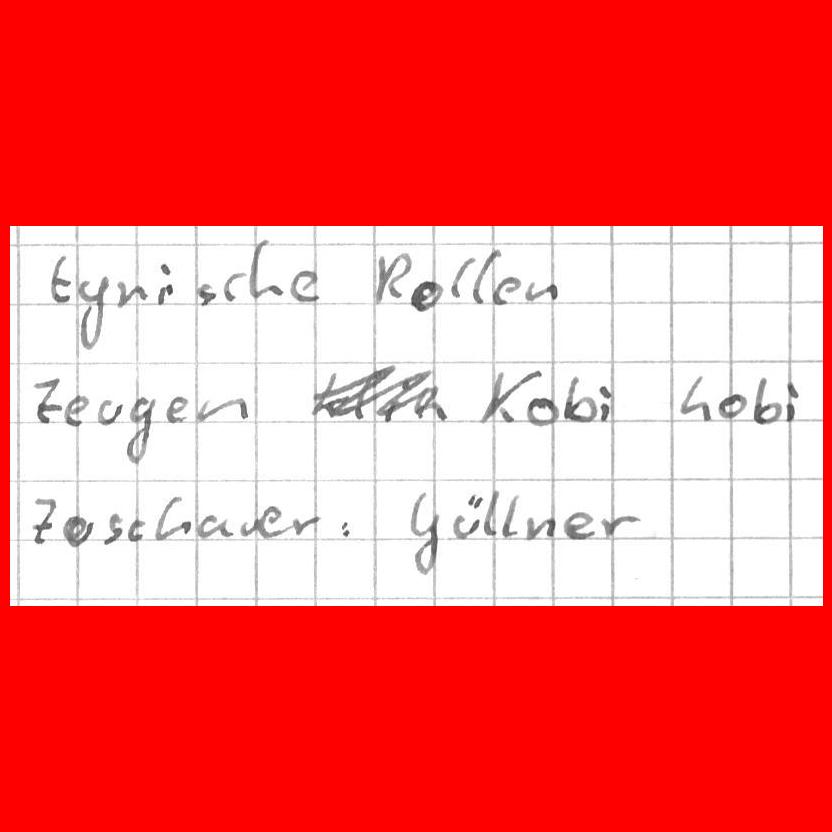 tynische Rollen
Zeugen Kobi hobi
Zuschauer: Güllner